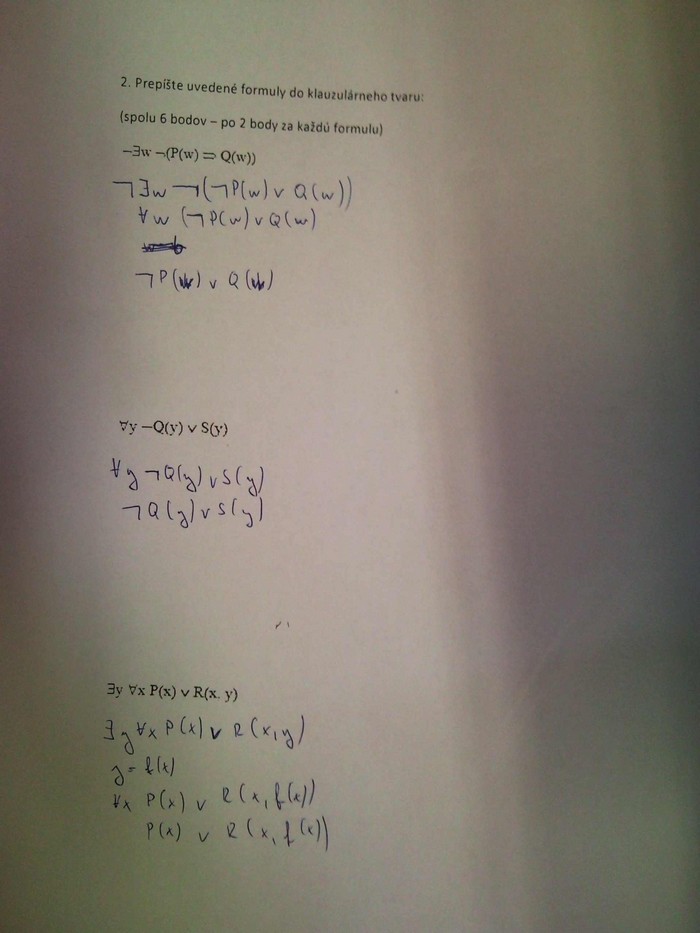 2. Prepíšte uvedené formuly do klauzulárneho tvaru:
(spolu 6 bodov – po 2 body za každú formulu)
¬∃w ¬(P(w) ⇒ Q(w))
¬∃w ¬(¬P(w) ∨ Q(w))
∀w (¬P(w) ∨ Q(w)
¬P(w) ∨ Q(w)
∀y ¬Q(y) ∨ S(y)
∀y ¬Q(y) ∨ S(y)
¬Q(y) ∨ S(y)
∃y ∀x P(x) ∨ R(x. y)
∃y ∀x P(x) ∨ R(x,y)
y = f(x)
∀x P(x) ∨ R(x, f(x))
P(x) ∨ R(x, f(x))